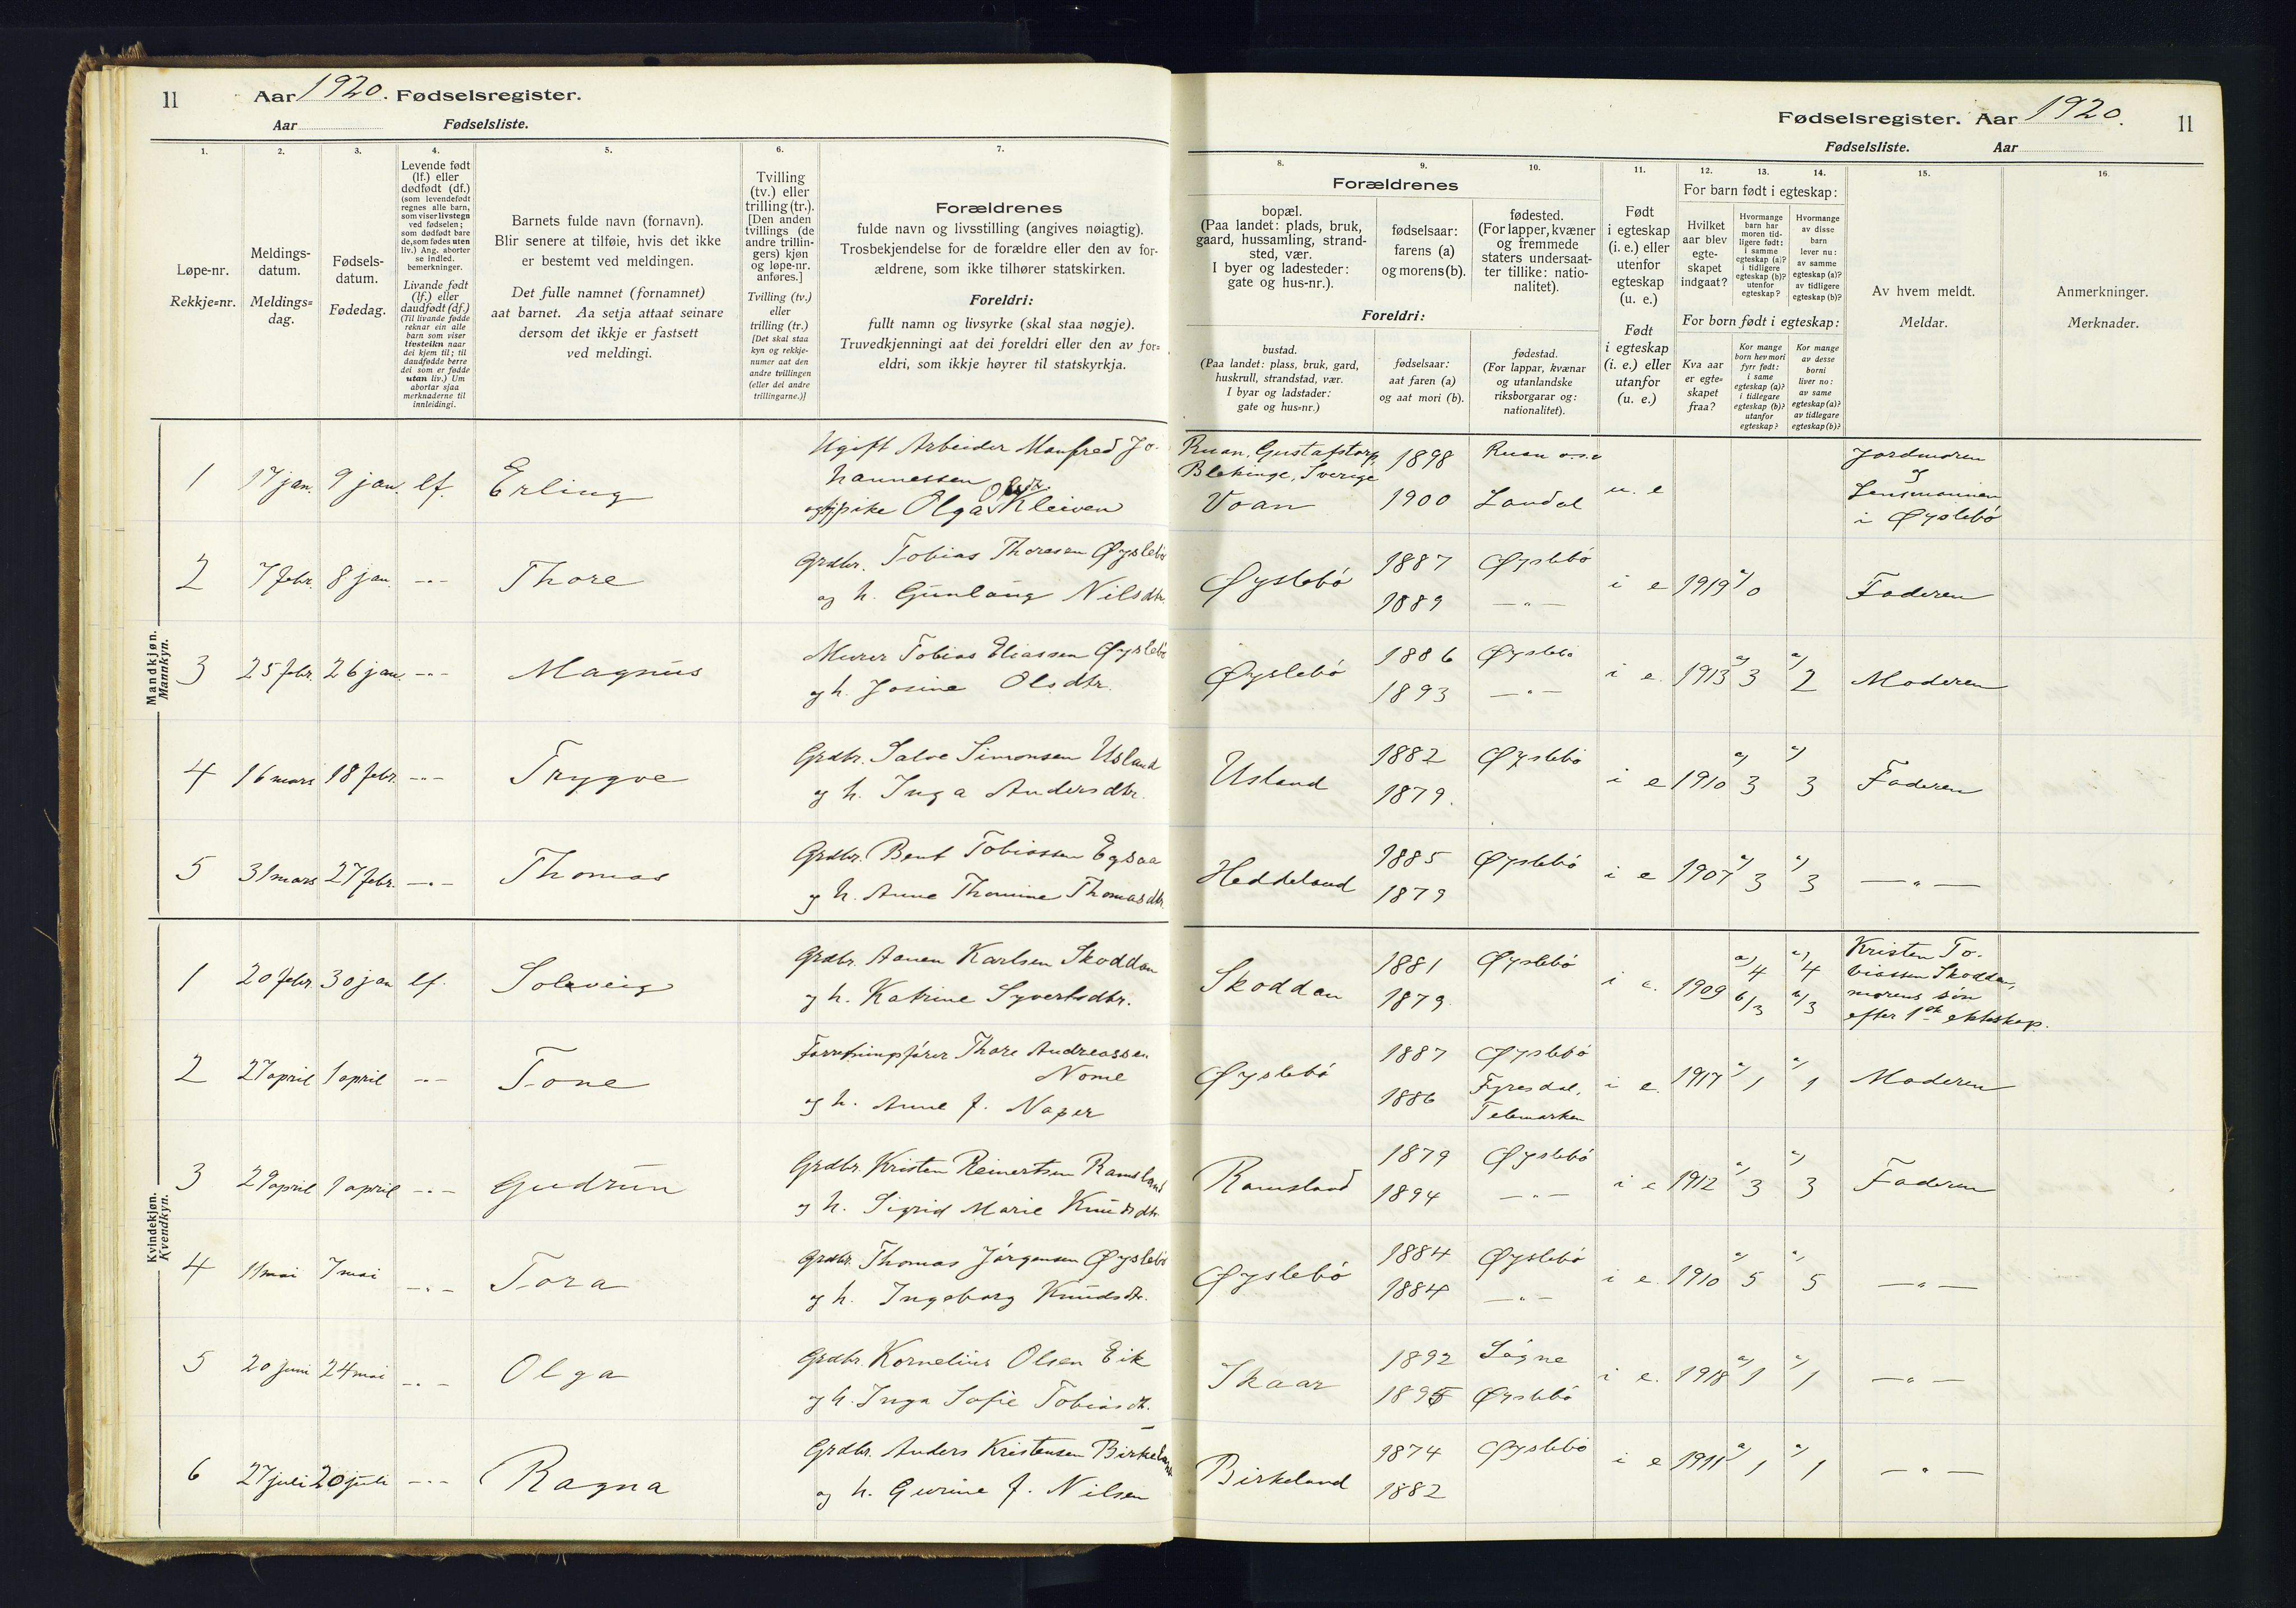 11 Aar 1920. Fødselsregister.
Aar Fødselsliste.
1. 2. 3. 4. 5. 6. 7.
Løpe-nr.
Rekkje=nr.
Meldings-
datum.
Meldings=
dag.
Fødsels-
datum.
Fødedag.
Levende født
(lf.) eller
dødfødt (df.)
(som levendefødt
regnes alle barn,
som viser livstegn
ved fødselen;
som dødfødt bare
de, som fødes uten
liv.) Ang. aborter
se indled.
bemerkninger.
Livande født
(lf.) eller
daudfødt (df.)
(Til livande fødde
reknar ein alle
barn som viser
livsteikn naar
dei kjem til; til
daudfødde berre
dei som er fødde
utan liv.) Um
abortar sjaa
merknaderne til
innleidingi.
Barnets fulde navn (fornavn).
Blir senere at tilføie, hvis det ikke
er bestemt ved meldingen.
Det fulle namnet (fornamnet)
aat barnet. Aa setja attaat seinare
dersom det ikkje er fastsett
ved meldingi.
Tvilling
(tv.) eller
trilling (tr.).
[Den anden
tvillings (de
andre trillin-
gers) kjøn
og løpe-nr.
anføres.]
Tvilling (tv.)
eller
trilling (tr.)
[Det skal staa
kyn og rekkje-
numer aat den
andre tvillingen
(eller dei andre
trillingarne.)]
Forældrenes
fulde navn og livsstilling (angives nøiagtig).
Trosbekjendelse for de forældre eller den av for-
ældrene, som ikke tilhører statskirken.
Foreldri:
fullt namn og livsyrke (skal staa nøgje).
Truvedkjenningi aat dei foreldri eller den av for=
eldri, som ikkje høyrer til statskyrkja.
Mandkjøn.
Mannkyn.
1 17 jan. 9 jan. lf. Erling
Ugift Arbeider Manfred Jo-
hannessen
og pike Olga Kleiven
2 7 febr. 8 jan. -"- Thore
Grdbr. Tobias Thoresen Øyslebö
og h. Gunlaug Nilsdtr.
3 25 febr. 26 jan. -"- Magnus
Murer Tobias Eliassen Øyslebö
og h. Josine Olsdtr.
4 16 mars 18 febr. -"- Trygve
Grdbr. Salve Simonsen Usland
og h. Inga Andersdtr.
5 31 mars 27 febr. -"- Thomas
Grdbr. Bent Tobiassen Egsaa
og h. Anne Thomine Thomasdtr.
Kvindekjøn.
Kvendkyn.
1 20 febr. 30 jan lf. Solveig
Grdbr. Aanen Karlsen Skoddan
og h. Katrine Syvertsdtr.
2 27 april 1 april -"- Tone
Forretningsförer Thore Andreassen
Nome
og h. Anne J. Naper
3 29 april 1 april -"- Gudrun
Grdbr. Kristen Reinertsen Ramsland
og h. Sigrid Marie Knudsdtr.
4 11 mai 7 mai -"- Tora
Grdbr. Thomas Jörgensen Øyslebö
og h. Ingeborg Knudsdtr.
5 20 juni 24 mai -"- Olga
Grdbr. Kornelius Olsen Eik
og h. Inga Sofie Tobiasdt.
6 27 juli 20 juli -"- Ragna
Grdbr. Anders Kristensen Birkeland
og h. Gurine J. Nilsen
Fødselsregister. Aar 1920. 11
Fødselsliste. Aar
8. 9. 10. 11. 12. 13. 14. 15. 16.
Forældrenes
bopæl.
(Paa landet: plads, bruk,
gaard, hussamling, strand-
sted, vær.
I byer og ladesteder:
gate og hus-nr.).
fødselsaar:
farens (a)
og morens (b).
fødested.
(For lapper, kvæner
og fremmede
staters undersaat-
ter tillike: natio-
nalitet).
Foreldri:
bustad.
(Paa landet: plass, bruk, gard,
huskrull, strandstad, vær.
I byar og ladstader:
gate og hus=nr.)
fødselsaar:
aat faren (a)
og aat mori (b).
fødestad.
(For lappar, kvænar
og utanlandske
riksborgarar og:
nationalitet).
Født
i egteskap
(i. e.) eller
utenfor
egteskap
(u. e.)
Født
i egteskap
(i. e.) eller
utanfor
(u. e.)
For barn født i egteskap:
Hvilket
aar blev
egte-
skapet
indgaat?
Hvormange
barn har
moren tid-
ligere født:
i samme
egteskap (a)?
i tidligere
egteskap (b)?
utenfor
egteskap?
Hvormange
av disse
barn
lever nu:
av samme
egteskap (a)?
av tidligere
egteskap (b)?
For born født i egteskap:
Kva aar
er egte=
skapet
fraa?
Kor mange
born hev mori
fyrr født:
i same
egteskap (a)?
i tidlegare
egteskap (b)?
utanfor
egteskap?
Kor mange
av desse
borni
liver no:
av same
egteskap (a)?
av tidlegare
egteskap (b)?
Av hvem meldt.
Meldar.
Anmerkninger.
Merknader.
Ruan, Gustafstorp, 1898 Ruan o.s.v
Blekinge, Sverige
Voan 1900 Laudal u. e
Jordmoren
og
Lensmannen
i Øyslebö
Øyslebö 1887 Øyslebö i e 1919 a/0 Faderen
1889 -"-
Øyslebö 1886 Øyslebö i e. 1913 a/3 a/2 Moderen
1893 -"-
Usland 1882 Øyslebö i e 1910 a/3 a/3 Faderen
1879.
Heddeland 1885 Øyslebö i e 1907 a/3 a/3 -"-
1879
Skoddan 1881 Øyslebö i e. 1909 a/4 b/3 a/4 b/3
1879.
Kristen To-
biassen Skoddan,
morens sön
efter 1ste ekteskap.
Øyslebö 1887 Øyslebö i e. 1917 a/1 a/1 Moderen
1886 Fyresdal,
Telemarken
Ramsland 1879 Øyslebö i e 1912 a/3 a/3 Faderen
1894 -"-
Øyslebö 1884 Øyslebö i e. 1910 a/5 a/5 -"-
1884 -"-
Skaar 1892 Sögne i e. 1918 a/1 a/1 -"-
1895 Øyslebö
Birkeland 1874 Øyslebö i e 1911 a/1 a/1 -"-
1882